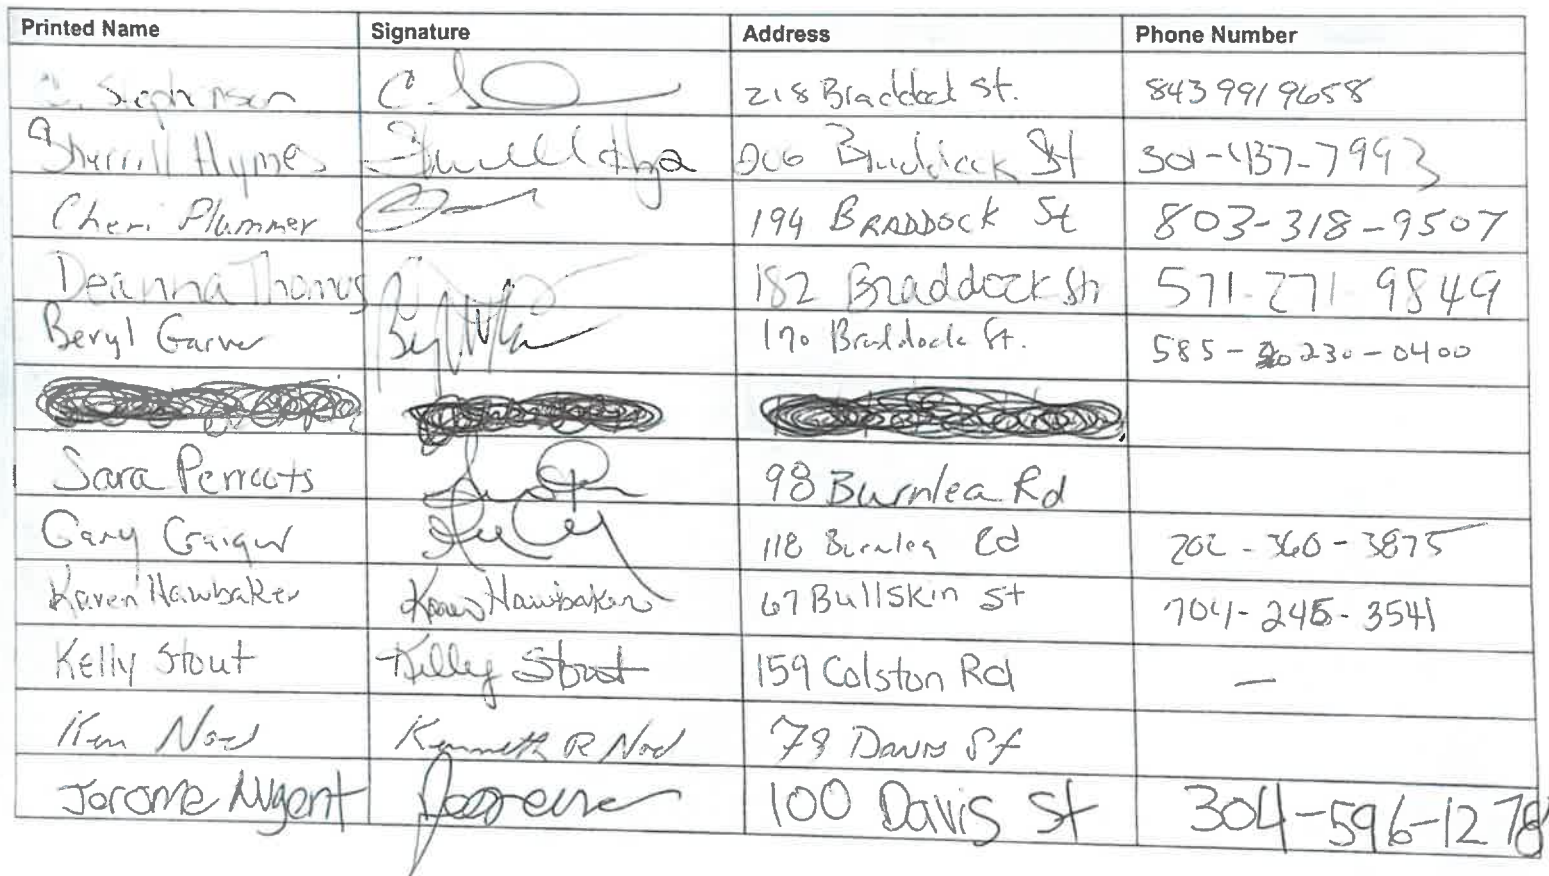 Printed Name Signature Address Phone Number
C. Stephenson C. S 218 Braddock St. 843 991 9658
Sherrill Hymes 206 Braddock St 301-437-7993
Cheri Plummer 194 BRADDOCK St 803-318-9507
Deanna Thomas 182 Braddock St 571-271-9849
Beryl Garver 170 Braddock St. 585-230-0400
Sara Perricots 98 Burnlea Rd
Gary Craigur 118 Burnlea Rd 202-360-3875
Karen Hawbaker Karen Hawbaker 67 Bullskin St 704-245-3541
Kelly Stout Kelly Stout 159 Colston Rd —
Ken Noel Kenneth R Noel 78 Davis St
Jerome Nugent 100 Davis St 304-596-1278